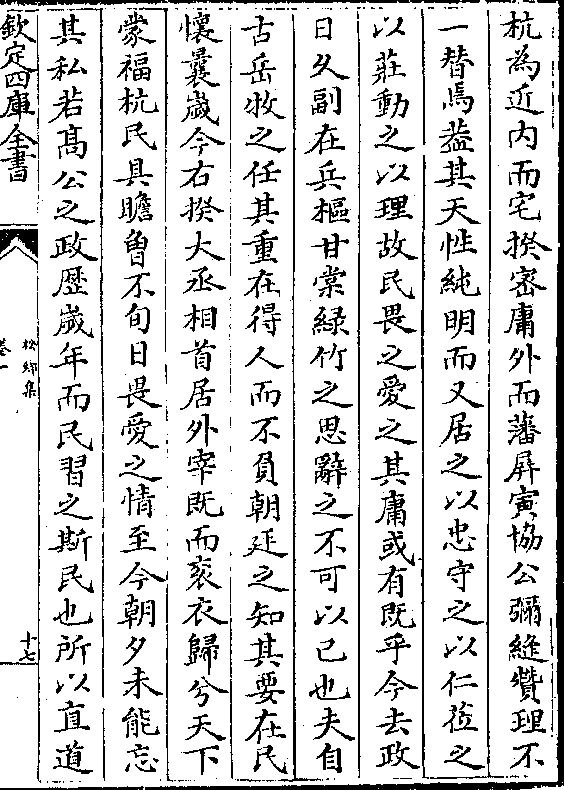 杭為近内而宅揆密庸外而藩屏寅協公彌縫賛理不
一替焉葢其天性純明而又居之以忠守之以仁莅之
以莊動之以理故民畏之愛之其庸或有既乎今去政
日久副在兵樞甘棠緑竹之思辭之不可以已也夫自
古岳牧之任其重在得人而不負朝廷之知其要在民
懐曩歲今右揆大丞相首居外宰既而衮衣歸兮天下
蒙福杭民具瞻曽不旬日畏愛之情至今朝夕未能忘
其私若髙公之政歴歲年而民習之斯民也所以直道
欽定四庫全書
松鄉集
卷一
十七